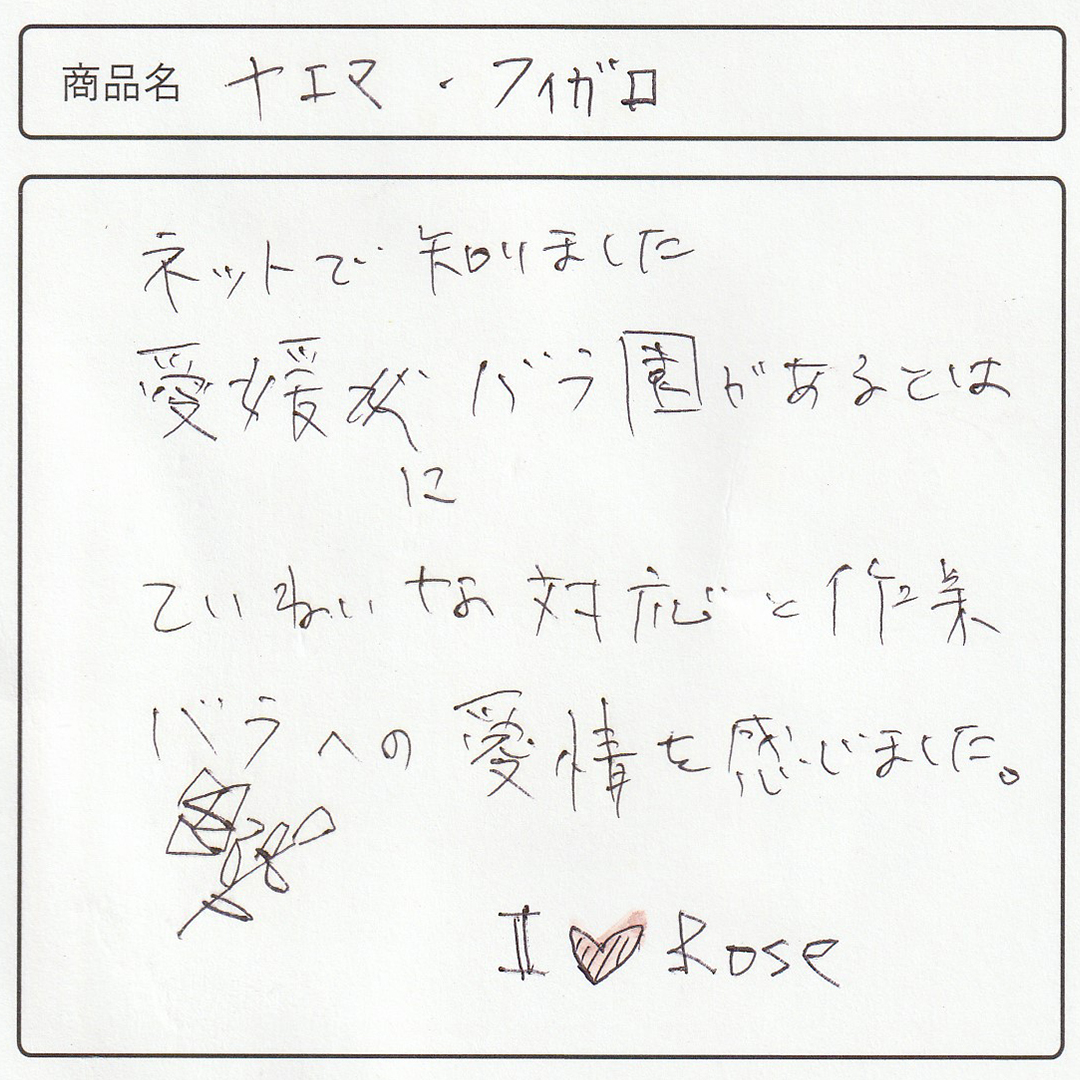 商品名 ヤエマ ・ フィガロ
ネットで 知りました
愛媛 バラ園があるとは
に
ていねいな 対応と作業
バラへの 愛情を感じました。
I ♥ Rose